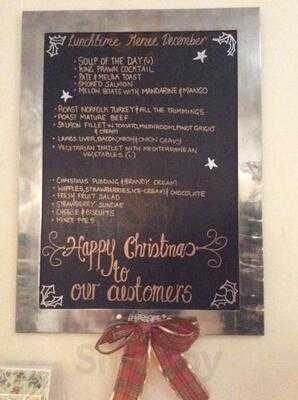 Lunchtime Menu December
· SOUP OF THE DAY (v)
· KING PRAWN COCKTAIL
· PATE & MELBA TOAST
· SMOKED SALMON
· MELON BOATS WITH MANDARINE & MANGO
· ROAST NORFOLK TURKEY & ALL THE TRIMMINGS
· ROAST MATURE BEEF
· SALMON FILLET in TOMATO, MUSHROOM, PINOT GRIGIO
& CREAM
· LAMBS LIVER, BACON, ONION (ONION GRAVY)
· VEGETARIAN TARTLET WITH MEDITERRANEAN
VEGETABLES (v)
· CHRISTMAS PUDDING & BRANDY CREAM
· WAFFLES, STRAWBERRIES, ICE-CREAM & CHOCOLATE
· FRESH FRUIT SALAD
· STRAWBERRY SUNDAE
· CHEESE & BISCUITS
· MINCE PIES
Happy Christmas
to
our customers